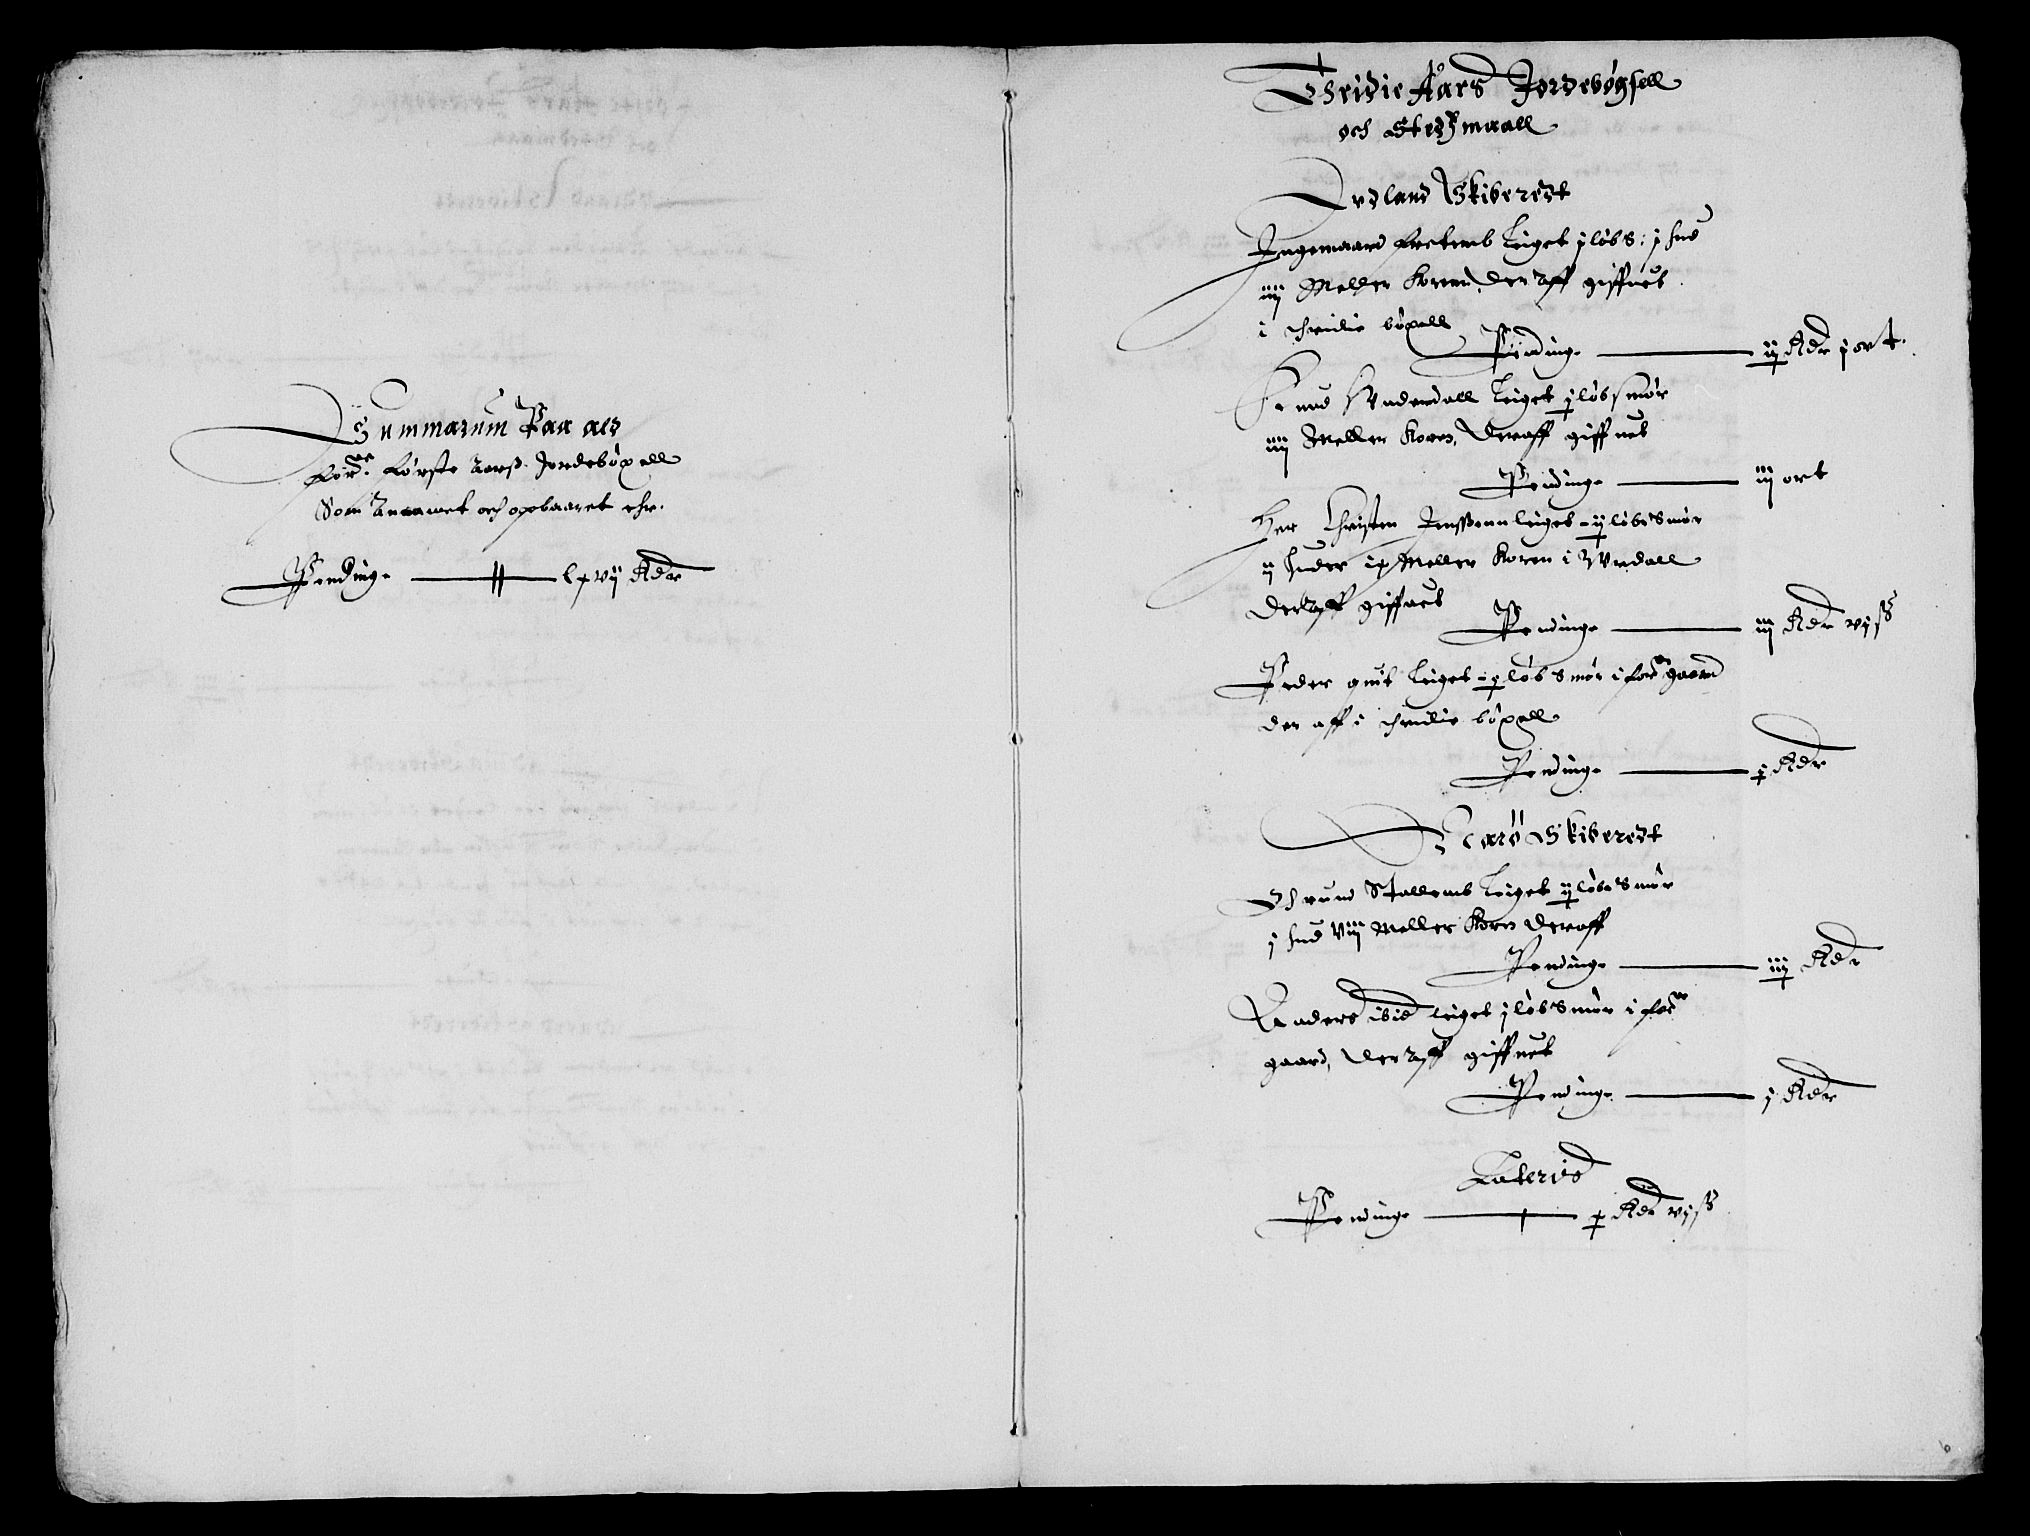 Summarum Paa als
forne Første Aars Jordebøxell
Som Annamet och opbaaret ehr.
Pendinge lxvij Rdr
Thridie Aars Jordebøgsell
och Stedzmaall
Ardland Skiberedt
Ingemaard leiget j løbs: j hud
iiij Meller Koren der Aff giffuet
i thridie bøxell
Pendinge ij Rdr j ort.
Knud leiget j løbsmør
iiij Meller Koren, deraff giffuet
Pendinge iij ort
Her Christen Jenssenn leiget ij løbesmør
ij huder ix Meller Koren i Ardall
der Aff giffuet
Pendinge iij Rdr vj ß
Peder leiget løbsmør i forne gaard
der aff i thridie bøxell
Pendinge j Rdr
Skiberedt
leiget ij løbesmør
j hud viij Meller Korn deraff
Pendinge iij Rdr
Anders ibid leiget j løbsmør i forne
gaard, der Aff giffuet
Pendinge j Rdr
Lateris
Pendinge x Rdr vj ß
6